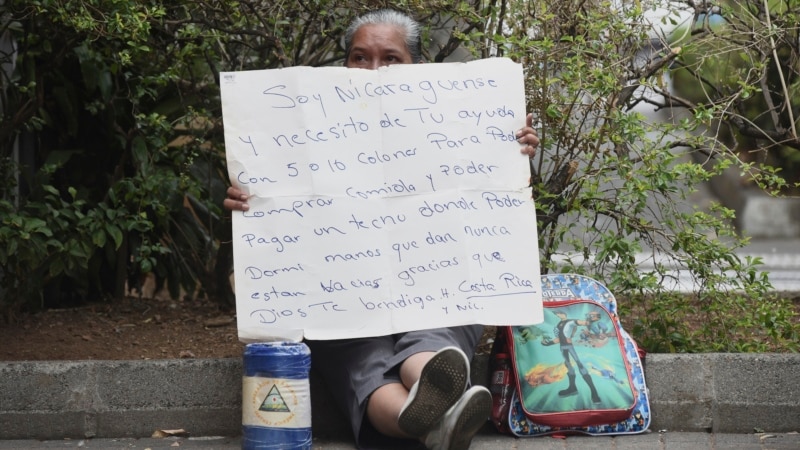 Soy Nicaraguense
y necesito de Tu ayuda
con 5 o 10 colones Para Pode
comprar comiola y poder
Pagar un techo donde Poder
Dormi manos que dan nunca
estan bacias gracias que
Dios Te bendiga H. Costa Rica
y Nic.